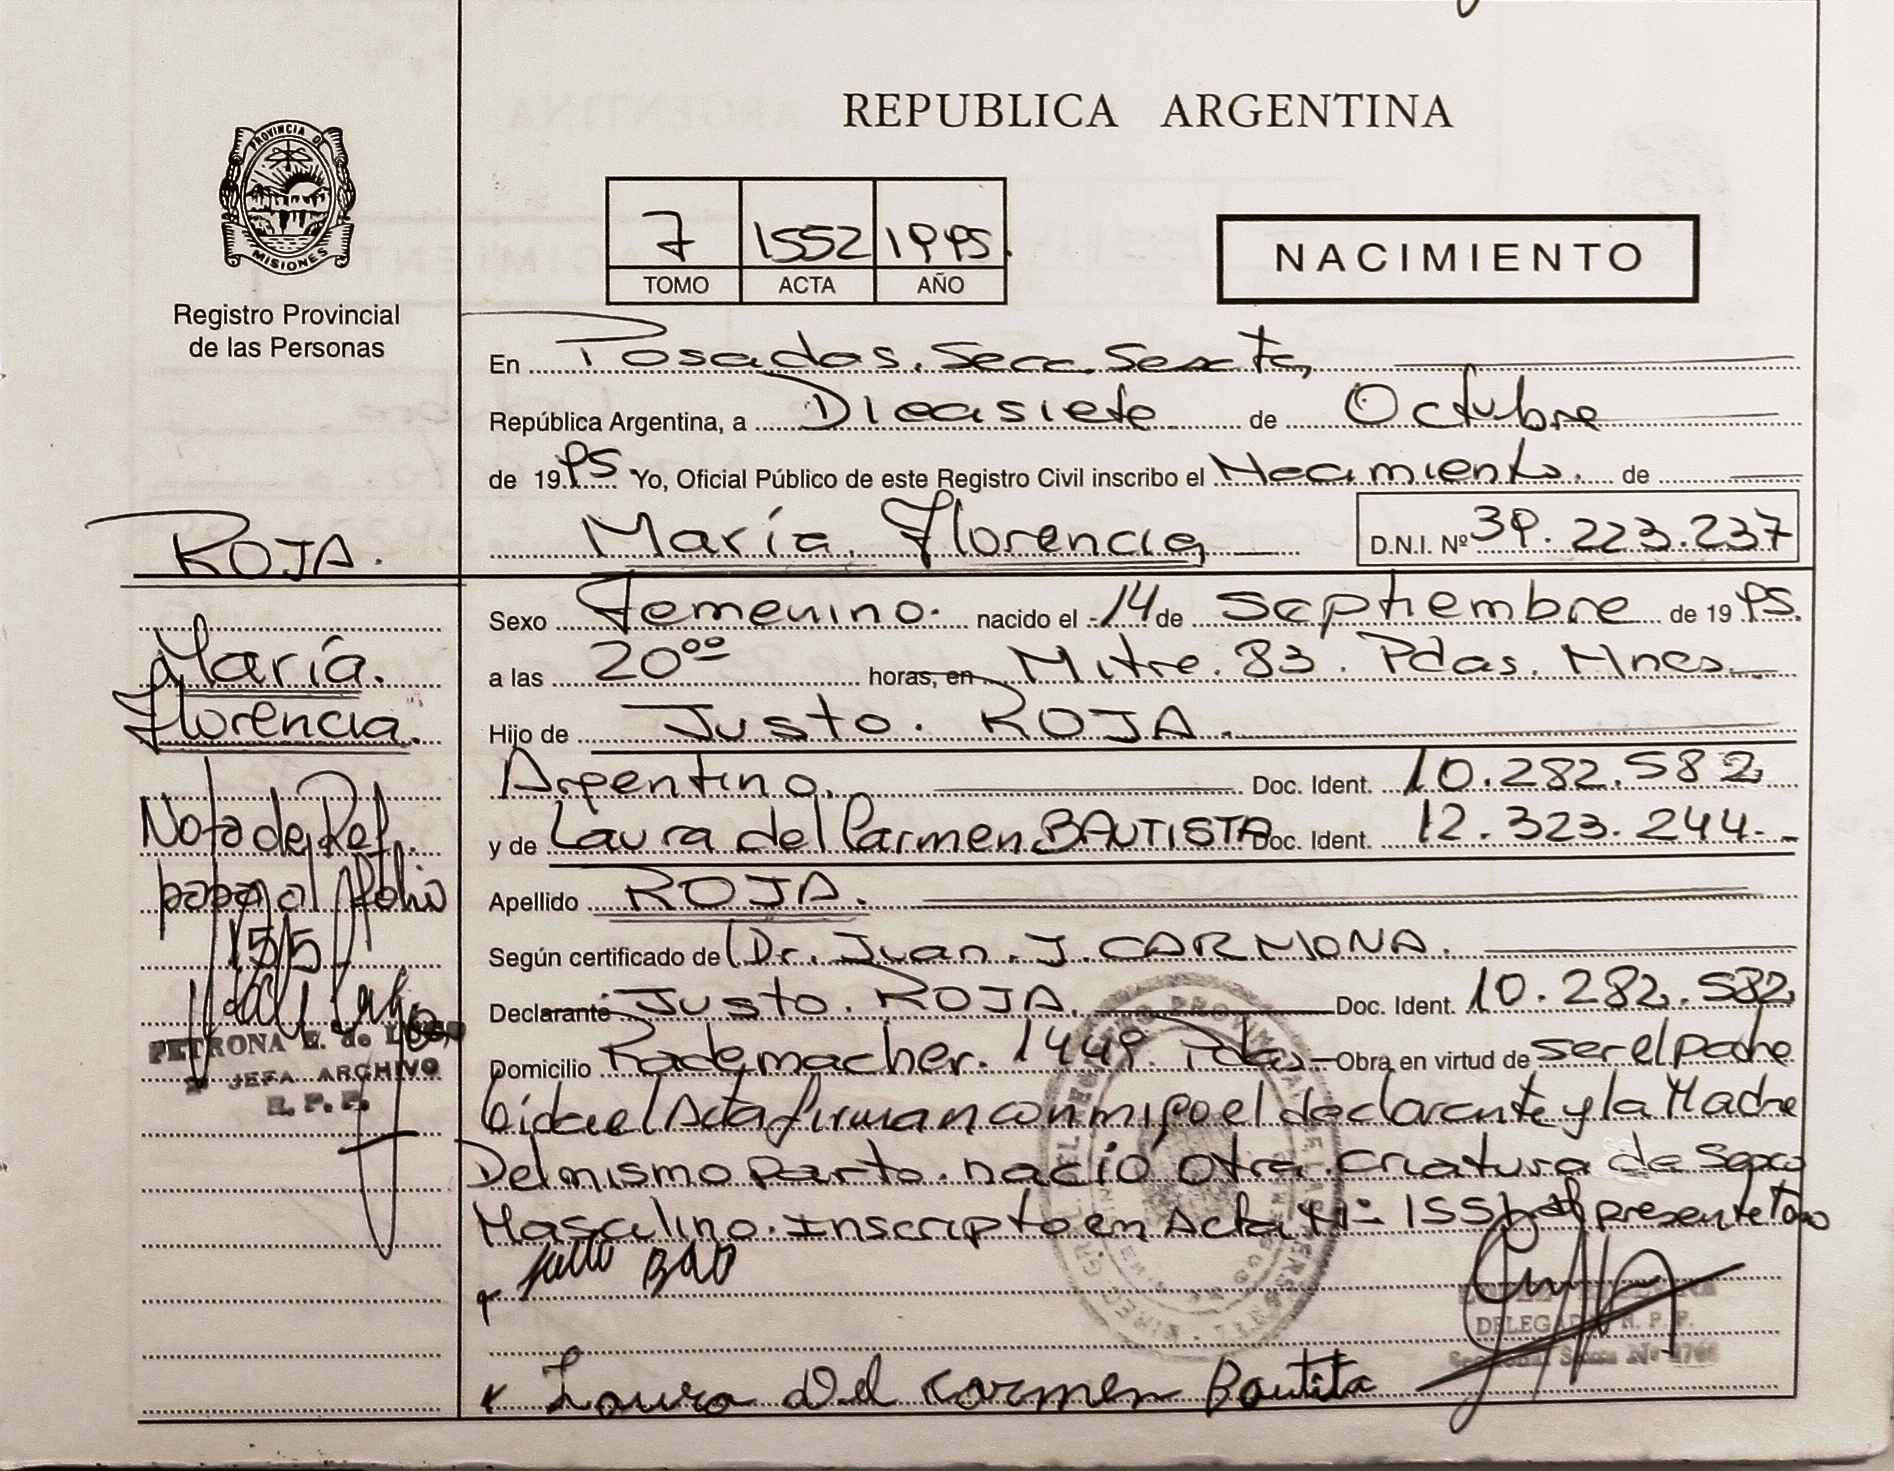 REPUBLICA ARGENTINA
PROVINCIA DE
MISIONES
Registro Provincial
de las Personas
7 1552 1995.
TOMO ACTA AÑO
NACIMIENTO
En Posadas. Secc. Sexta,
República Argentina, a Diecisiete de Octubre
de 1995 Yo, Oficial Público de este Registro Civil inscribo el Nacimiento. de
ROJA.
María Florencia, D.N.I. Nº 39.223.237
María.
Florencia.
Sexo Femenino. nacido el 14 de Septiembre de 1995.
a las 20⁰⁰ horas, en Mitre. 83. Pdas. Mnes.
Hijo de Justo. ROJA.
Argentino. Doc. Ident. 10.282.582
y de Laura del Carmen BAUTISTA Doc. Ident. 12.323.244.-
Apellido ROJA.
Según certificado de Dr. Juan. J. CARMONA.
Declarante Justo. ROJA. Doc. Ident. 10.282.582
Domicilio Rademacher. 1449. Pdas. Obra en virtud de ser el padre
el Acta firman conmigo el declarante y la Madre
Del mismo parto. nació otra. criatura de Sexo
Masculino. Inscripto en Acta Nº 1551 del presente Tomo
Nota de Ref.
al folio
155
PETRONA E. de
JEFA ARCHIVO
R. P. P.
DELEGADO R. P. P.
Laura Del Carmen Bautita